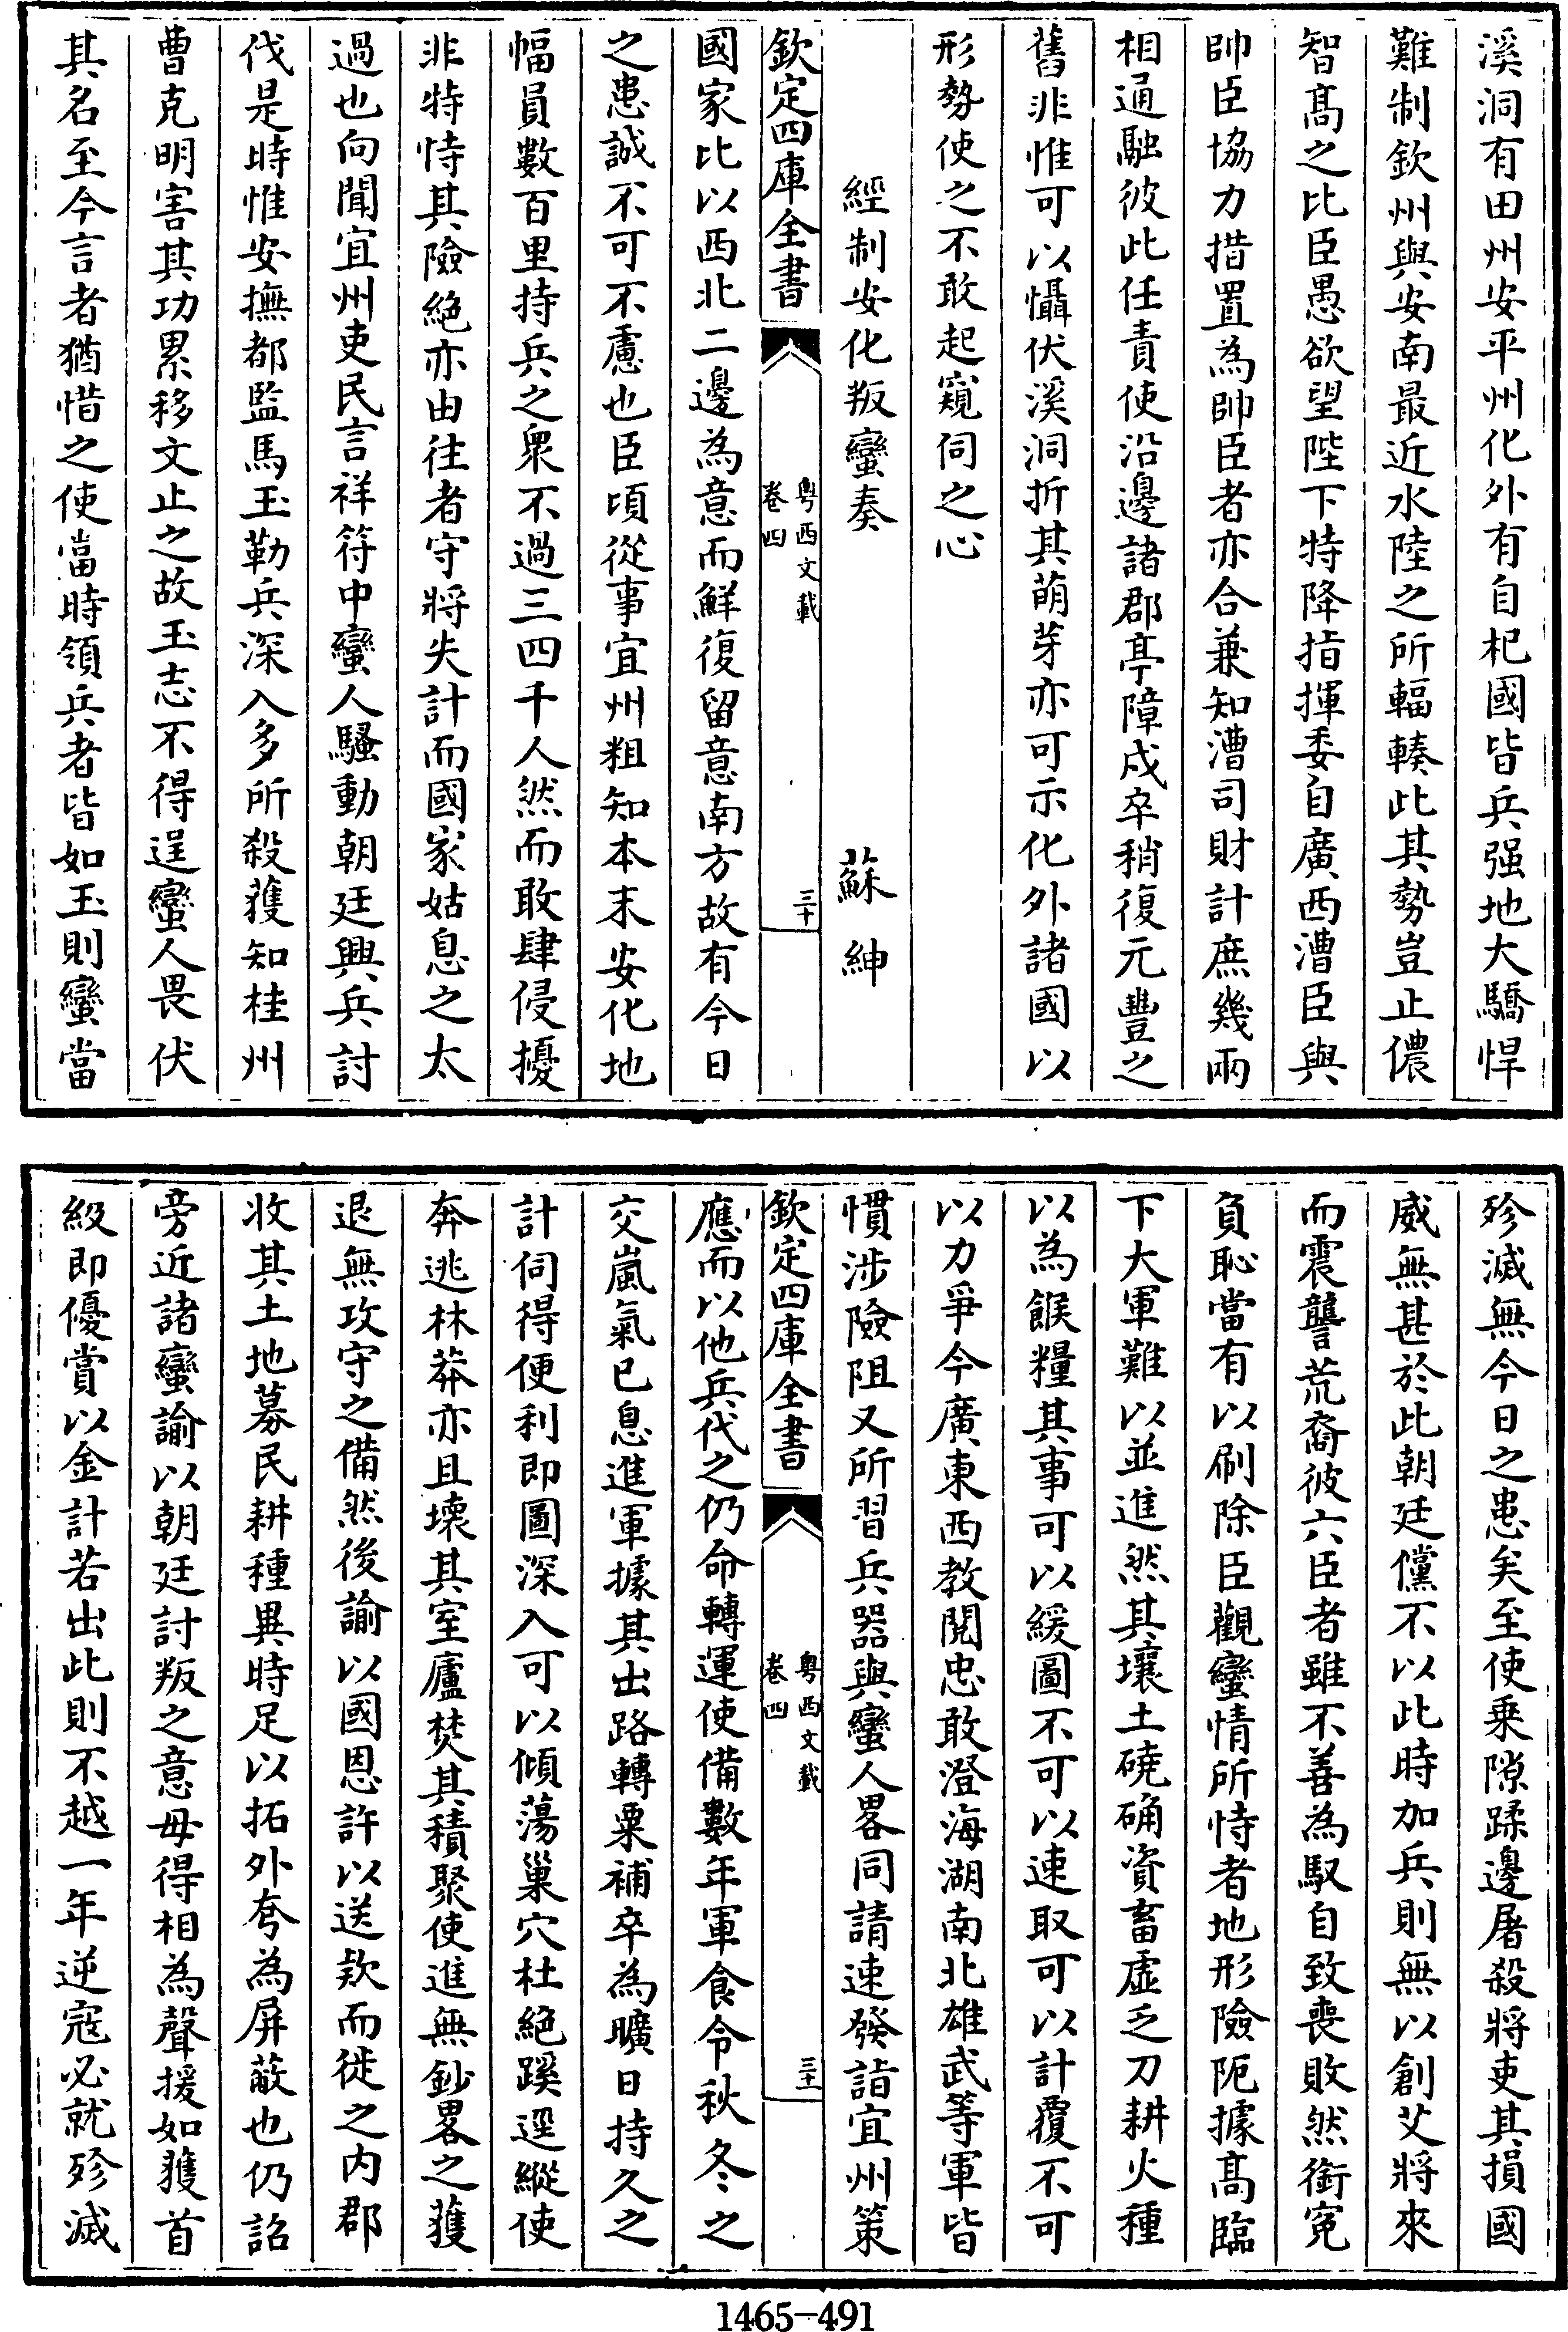 溪洞有田州安平州化外有自杞國皆兵强地大驕悍
難制欽州與安南最近水陸之所輻輳此其勢豈止儂
智髙之比臣愚欲望陛下特降指揮委自廣西漕臣與
帥臣協力措置為帥臣者亦合兼知漕司財計庶幾兩
相通融彼此任責使沿邊諸郡亭障戍卒稍復元豐之
舊非惟可以懾伏溪洞折其萌芽亦可示化外諸國以
形勢使之不敢起窺伺之心
經制安化叛蠻奏 蘇紳
欽定四庫全書 粤西文載 卷四 三十
國家比以西北二邊為意而鮮復留意南方故有今日
之患誠不可不慮也臣頃從事宜州粗知本末安化地
幅員數百里持兵之衆不過三四千人然而敢肆侵擾
非特恃其險絶亦由往者守將失計而國家姑息之太
過也向聞宜州吏民言祥符中蠻人騷動朝廷興兵討
伐是時惟安撫都監馬玉勒兵深入多所殺獲知桂州
曹克明害其功累移文止之故玉志不得逞蠻人畏伏
其名至今言者猶惜之使當時領兵者皆如玉則蠻當
殄滅無今日之患矣至使乗隙蹂邊屠殺將吏其損國
威無甚於此朝廷儻不以此時加兵則無以創艾將來
而震讋荒裔彼六臣者雖不善為馭自致喪敗然銜寃
負恥當有以刷除臣觀蠻情所恃者地形險阨據髙臨
下大軍難以並進然其壤土磽确資畜虛乏刀耕火種
以為餱糧其事可以緩圖不可以速取可以計覆不可
以力爭今廣東西教閲忠敢澄海湖南北雄武等軍皆
慣涉險阻又所習兵器與蠻人畧同請速發詣宜州策
欽定四庫全書 粤西文載 卷四 三十一
應而以他兵代之仍命轉運使備數年軍食今秋冬之
交嵐氣已息進軍據其出路轉粟補卒為曠日持久之
計伺得便利即圖深入可以傾蕩巢穴杜絶蹊逕縱使
奔逃林莽亦且壊其室廬焚其積聚使進無鈔畧之獲
退無攻守之備然後諭以國恩許以送欵而徙之内郡
收其土地募民耕種異時足以拓外夸為屏蔽也仍詔
旁近諸蠻諭以朝廷討叛之意毋得相為聲援如獲首
級即優賞以金計若出此則不越一年逆寇必就殄滅
1465-491